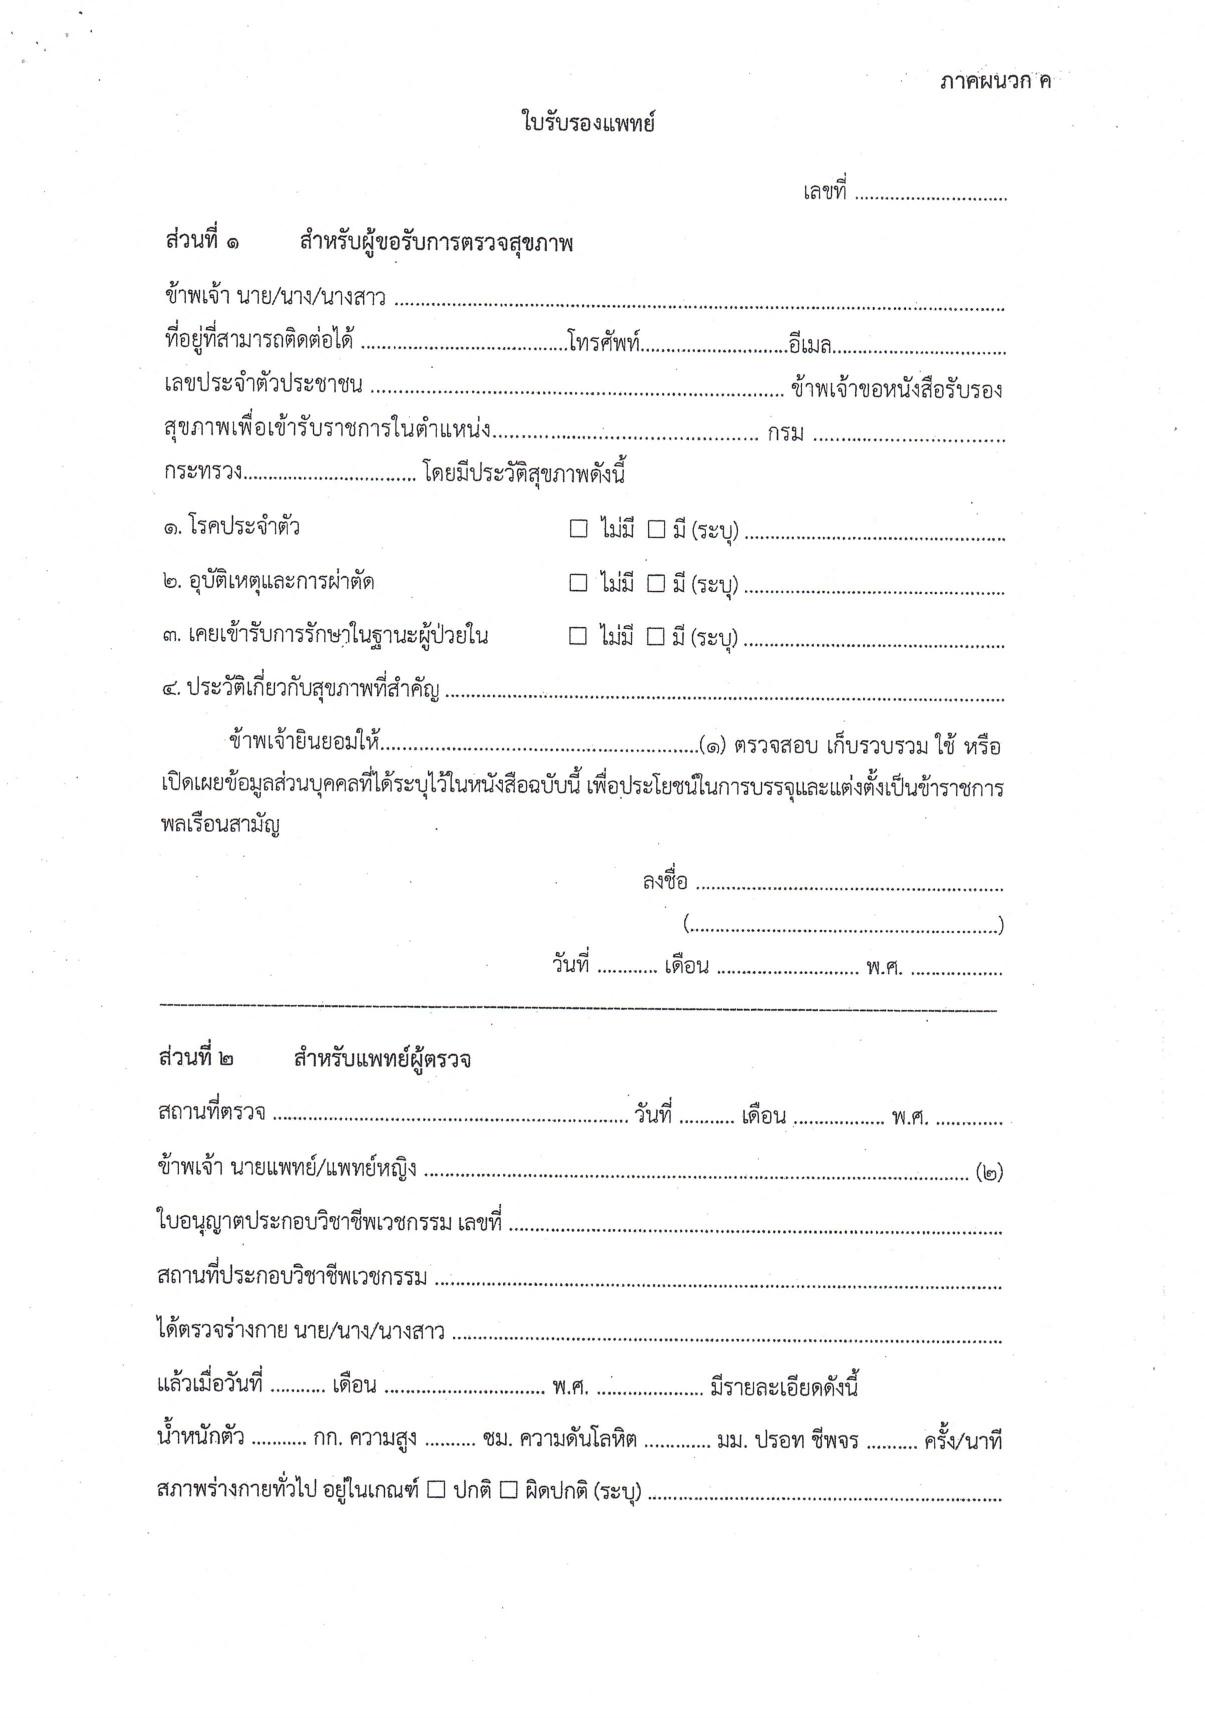 ภาคผนวก ค
ใบรับรองแพทย์
เลขที่ ..............................
ส่วนที่ ๑ สำหรับผู้ขอรับการตรวจสุขภาพ
ข้าพเจ้า นาย/นาง/นางสาว ..............................
ที่อยู่ที่สามารถติดต่อได้ ..............................โทรศัพท์..............................อีเมล..............................
เลขประจำตัวประชาชน .............................. ข้าพเจ้าขอหนังสือรับรอง
สุขภาพเพื่อเข้ารับราชการในตำแหน่ง.............................. กรม ..............................
กระทรวง.............................. โดยมีประวัติสุขภาพดังนี้
๑. โรคประจำตัว ☐ ไม่มี ☐ มี (ระบุ) ..............................
๒. อุบัติเหตุและการผ่าตัด ☐ ไม่มี ☐ มี (ระบุ) ..............................
๓. เคยเข้ารับการรักษาในฐานะผู้ป่วยใน ☐ ไม่มี ☐ มี (ระบุ) ..............................
๔. ประวัติเกี่ยวกับสุขภาพที่สำคัญ ..............................
ข้าพเจ้ายินยอมให้..............................(๑) ตรวจสอบ เก็บรวบรวม ใช้ หรือ
เปิดเผยข้อมูลส่วนบุคคลที่ได้ระบุไว้ในหนังสือฉบับนี้ เพื่อประโยชน์ในการบรรจุและแต่งตั้งเป็นข้าราชการ
พลเรือนสามัญ
ลงชื่อ ..............................
(..............................)
วันที่ ............ เดือน ............................ พ.ศ. ..................
ส่วนที่ ๒ สำหรับแพทย์ผู้ตรวจ
สถานที่ตรวจ .............................. วันที่ ........... เดือน .................. พ.ศ. .............
ข้าพเจ้า นายแพทย์/แพทย์หญิง .............................. (๒)
ใบอนุญาตประกอบวิชาชีพเวชกรรม เลขที่ ..............................
สถานที่ประกอบวิชาชีพเวชกรรม ..............................
ได้ตรวจร่างกาย นาย/นาง/นางสาว ..............................
แล้วเมื่อวันที่ ........... เดือน .............................. พ.ศ. ..................... มีรายละเอียดดังนี้
น้ำหนักตัว ........... กก. ความสูง .......... ซม. ความดันโลหิต ............. มม. ปรอท ชีพจร .......... ครั้ง/นาที
สภาพร่างกายทั่วไป อยู่ในเกณฑ์ ☐ ปกติ ☐ ผิดปกติ (ระบุ) ..............................